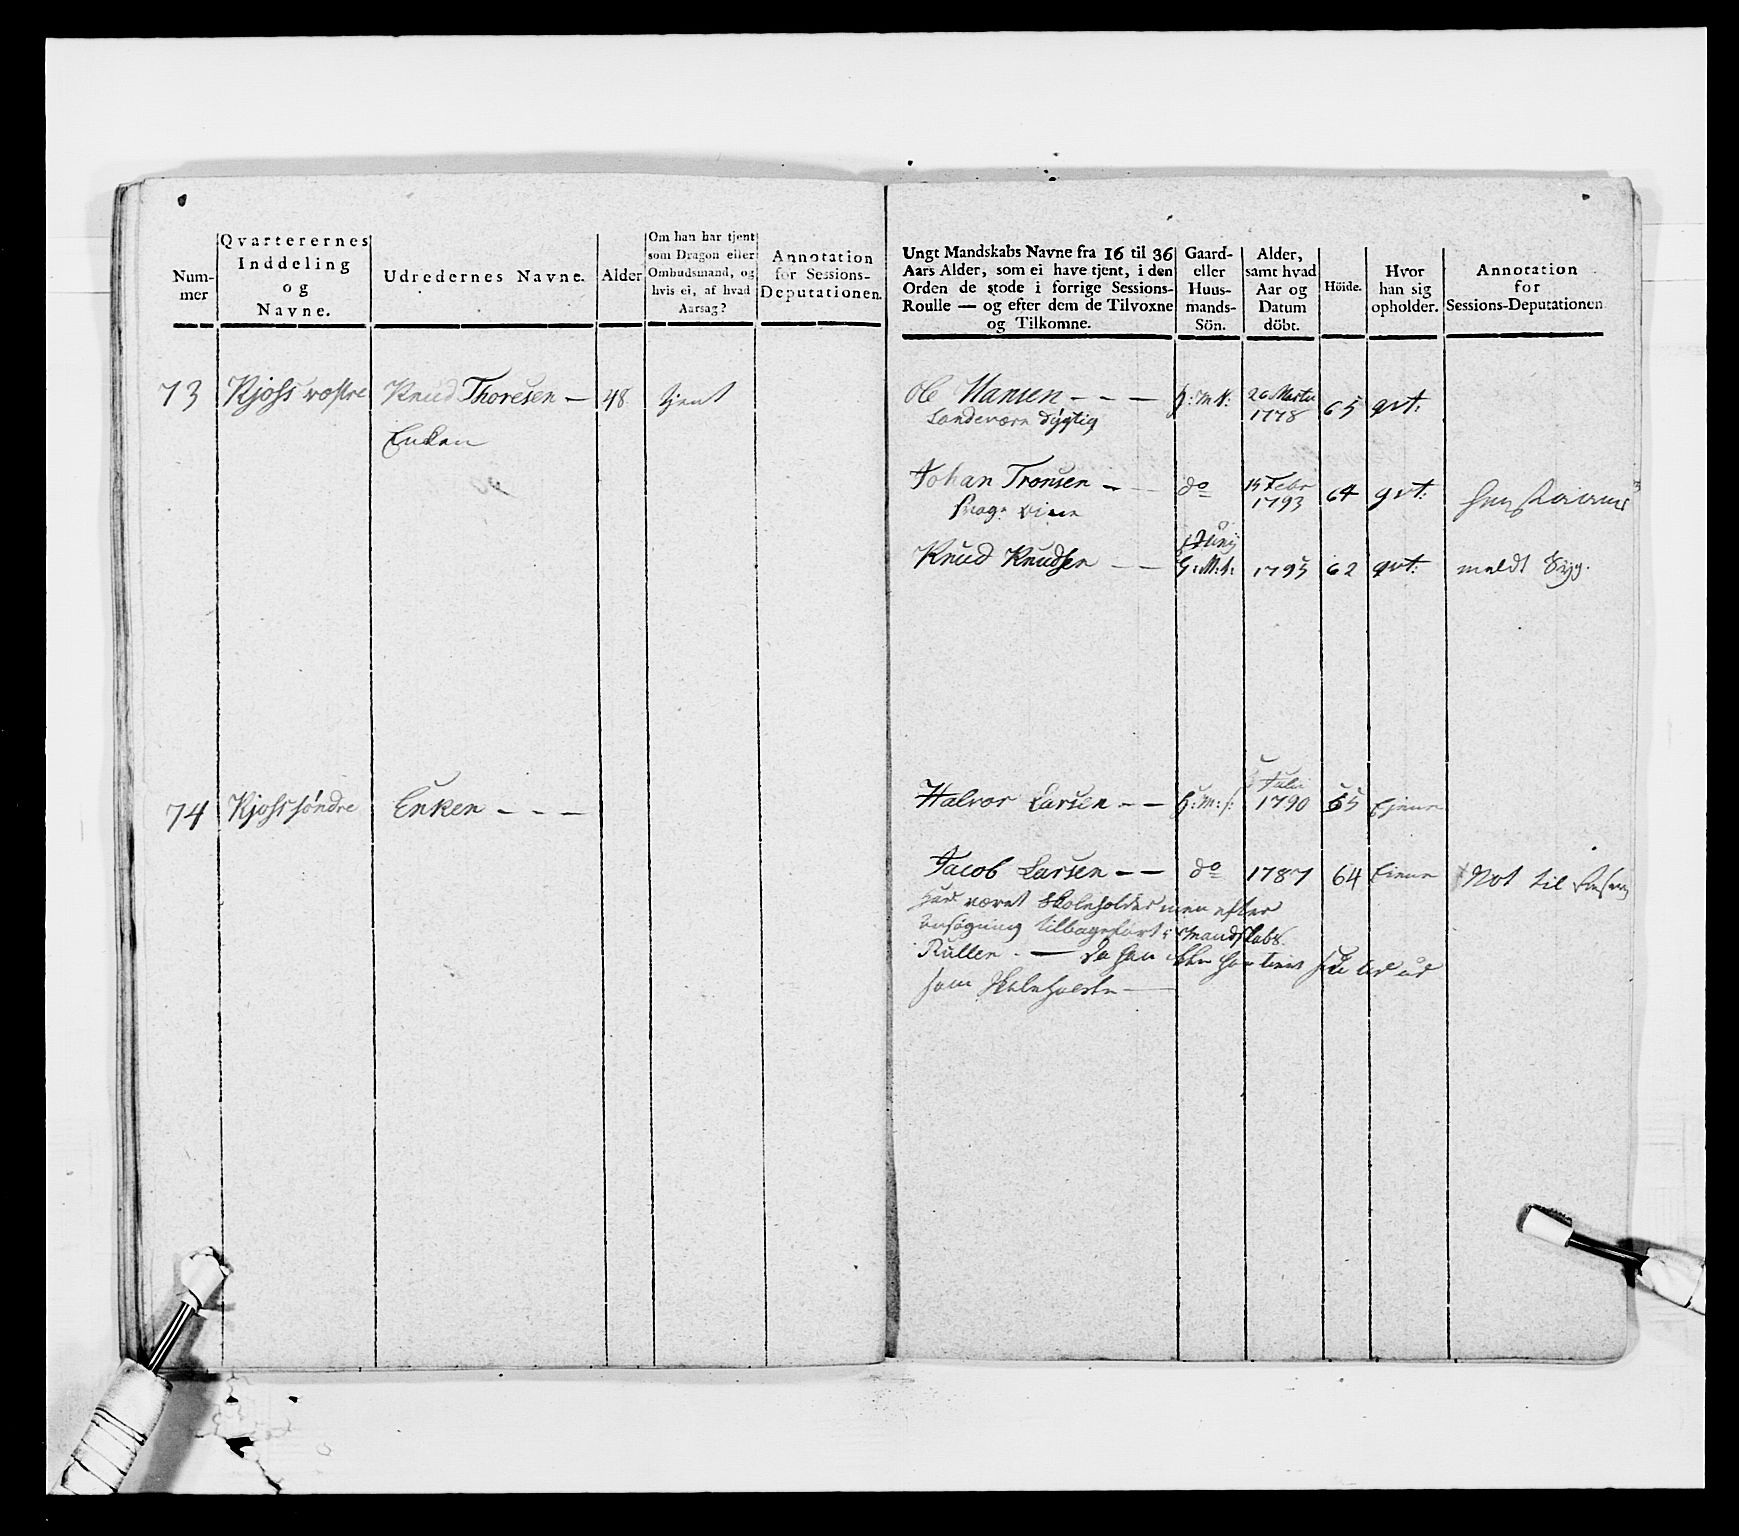 Num-
mer
Qvarterernes
Inddeling
og
Navne.
Udredernes Navne.
Alder
Om han har tjent
som Dragon eller
Ombudsmand, og
hvis ei, af hvad
Aarsag?
Annotation
for Sessions-
Deputationen.
73 Kjoss væstre Knud Thoresen — 48 tjent
Enken
74 Kjoss söndre Enken - - -
Ungt Mandskabs Navne fra 16 til 36
Aars Alder, som ei have tjent, i den
Orden de stode i forrige Sessions-
Roulle — og efter dem de Tilvoxne
og Tilkomne.
Gaard-
eller
Huus-
mands-
Sön.
Alder,
samt hvad
Aar og
Datum
döbt.
Höide.
Hvor
han sig
opholder.
Annotation
for
Sessions-Deputationen
Ole Hansen - - — 26 Martii 1778 65 qvt:
Landeværn dygtig
Johan Tronsen - — do 15 Febr 1793 64 qvt:
Knud Knudsen — — G:M:s: 1795 62 qvt: meldt Syg.
Halvor Larsen — — H:M:s: Julii 1790 65 tjener
Jacob Larsen — — do 1787 64 tjener Not til
har været Skoleholder men efter
ansøgning tilbageført i Mandskabs
Rullen. — da han
som Skoleholder —